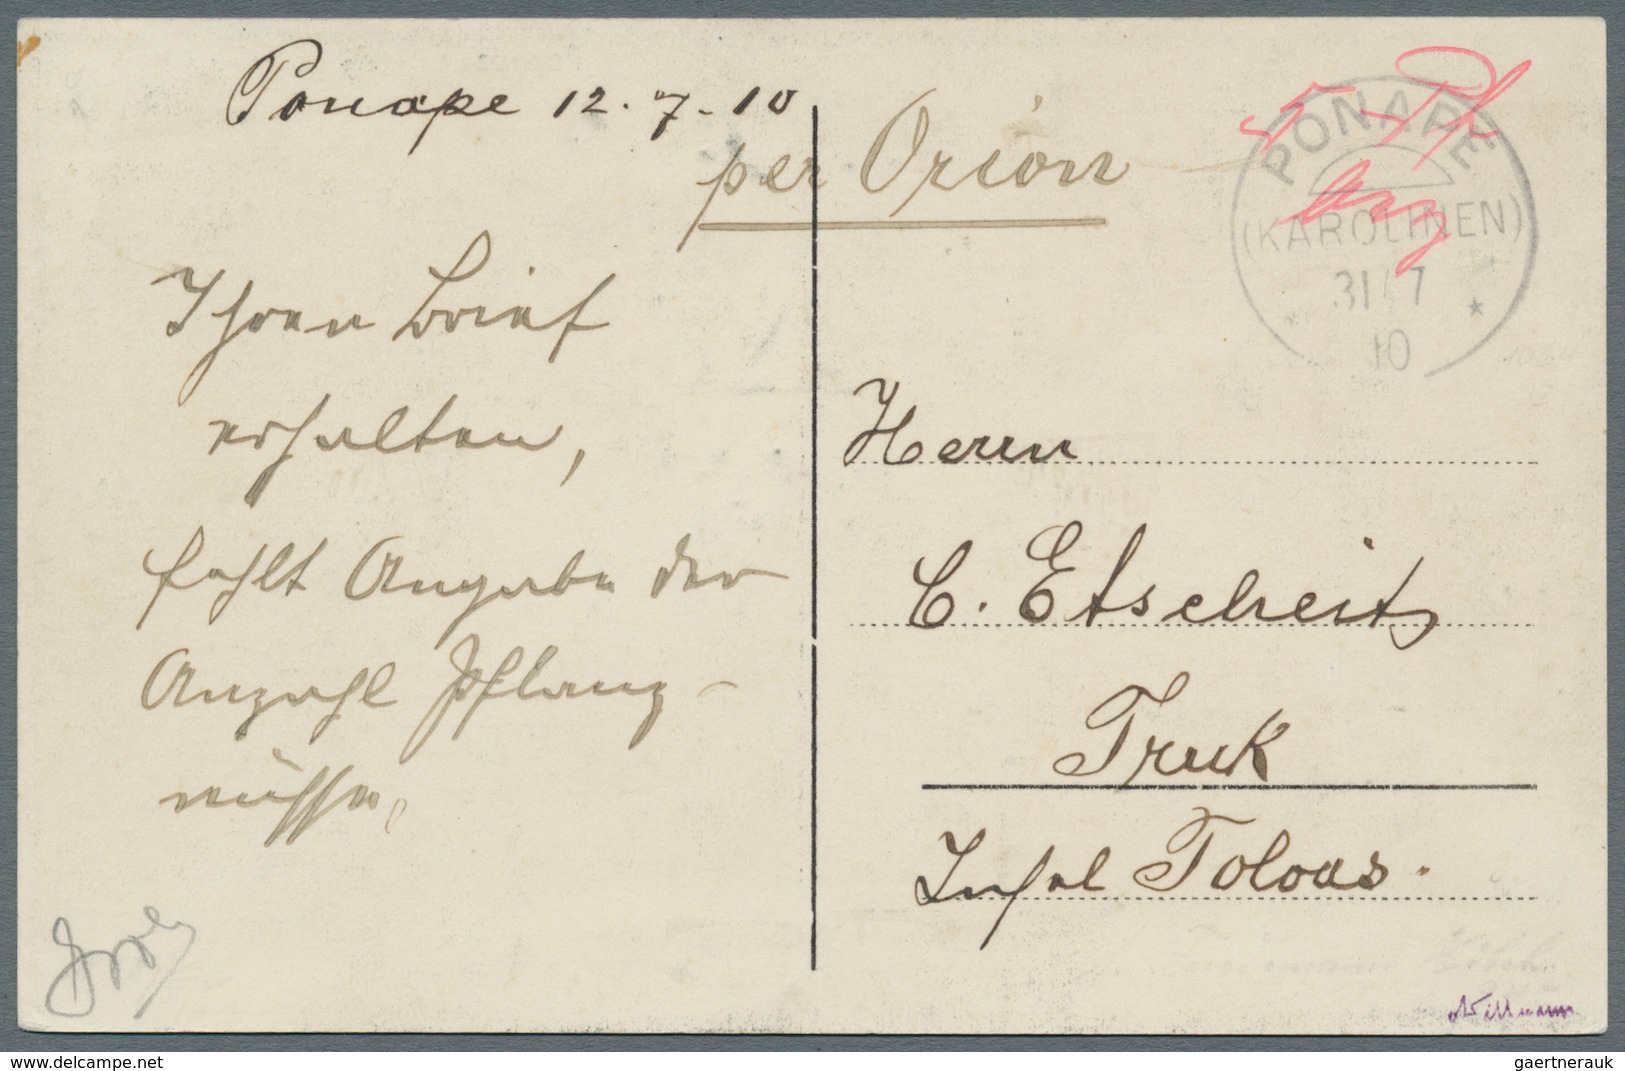 Ponape 12.7.10
per Orion
5 Pf
PONAPE
(KAROLINEN)
31/7
10
Ihren Brief
erhalten,
fehlt Angabe der
Anzahl Pflanz-
nüsse,
Herrn
C. Etscheit
Truk
Insel Toloas.
Willmann
gaertnerauk